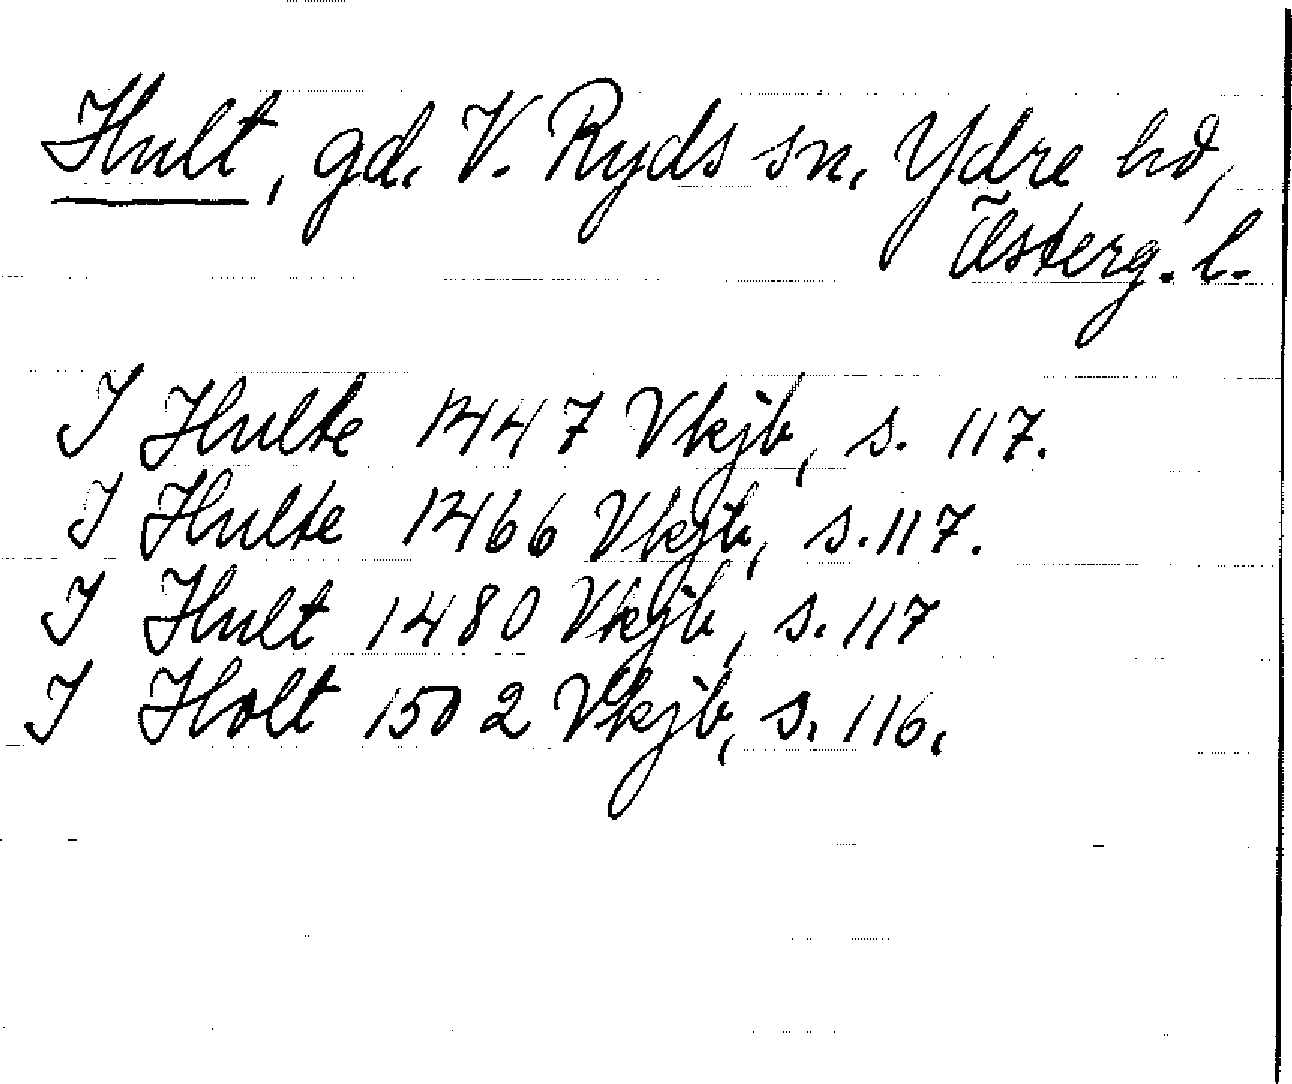 Hult, gd. V. Ryds sn, Ydre hd,
Österg. l.
I Hulte 1447 Vkjb, s. 117.
I Hulte 1466 Vkjb, s. 117.
I Hult 1480 Vkjb, s. 117
I Holt 1502 Vkjb, s. 116.